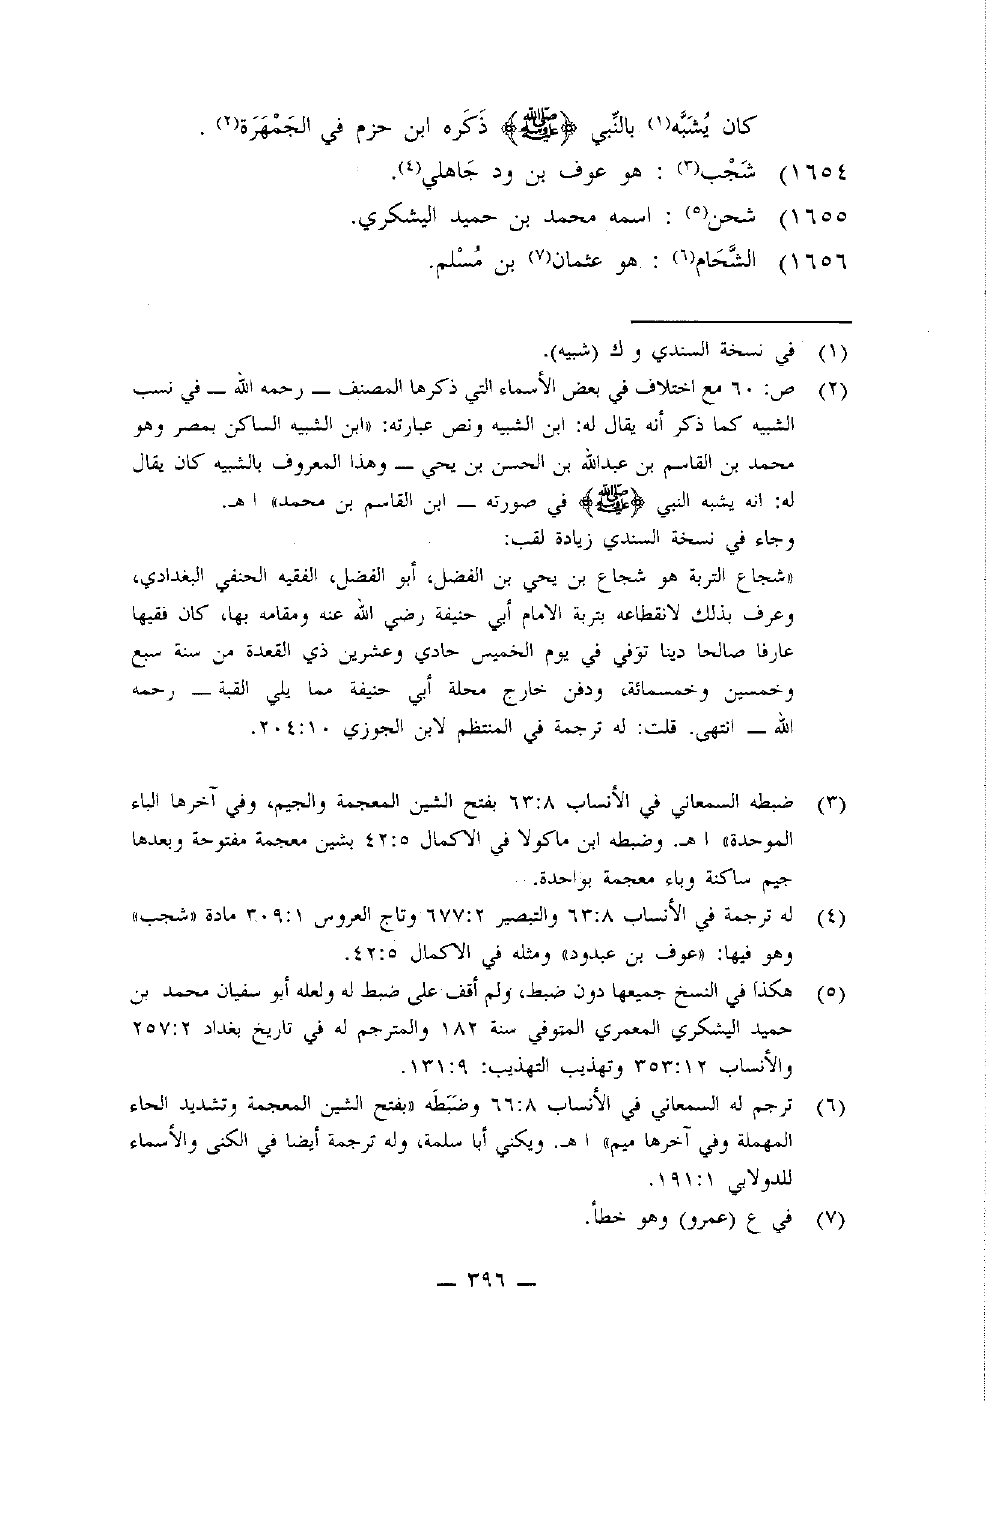 كان يُشَبَّه(١) بالنَّبي ﴿ﷺ﴾ ذَكَره ابن حزم في الجَمْهَرَة(٢) .
١٦٥٤) شَجْب(٣) : هو عوف بن ود جَاهلي(٤).
١٦٥٥) شحن(٥) : اسمه محمد بن حميد اليشكري.
١٦٥٦) الشَّحَام(٦) : هو عثمان(٧) بن مُسْلم.
(١) في نسخة السندي و ك (شبيه).
(٢) ص: ٦٠ مع اختلاف في بعض الأسماء التي ذكرها المصنف ــ رحمه الله ــ في نسب
الشبيه كما ذكر أنه يقال له: ابن الشبيه ونص عبارته: «ابن الشبيه الساكن بمصر وهو
محمد بن القاسم بن عبدالله بن الحسن بن يحي ــ وهذا المعروف بالشبيه كان يقال
له: انه يشبه النبي ﴿ﷺ﴾ في صورته ــ ابن القاسم بن محمد» ا هـ.
وجاء في نسخة السندي زيادة لقب:
«شجاع التربة هو شجاع بن يحي بن الفضل، أبو الفضل، الفقيه الحنفي البغدادي،
وعرف بذلك لانقطاعه بتربة الامام أبي حنيفة رضي الله عنه ومقامه بها، كان فقيها
عارفا صالحا دينا توفي في يوم الخميس حادي وعشرين ذي القعدة من سنة سبع
وخمسين وخمسمائة، ودفن خارج محلة أبي حنيفة مما يلي القبة ــ رحمه
الله ــ انتهى. قلت: له ترجمة في المنتظم لابن الجوزي ٢٠٤:١٠.
(٣) ضبطه السمعاني في الأنساب ٦٣:٨ بفتح الشين المعجمة والجيم، وفي آخرها الباء
الموحدة» ا هـ. وضبطه ابن ماكولا في الاكمال ٤٢:٥ بشين معجمة مفتوحة وبعدها
جيم ساكنة وباء معجمة بواحدة.
(٤) له ترجمة في الأنساب ٦٣:٨ والتبصير ٦٧٧:٢ وتاج العروس ٣٠٩:١ مادة «شجب»
وهو فيها: «عوف بن عبدود» ومثله في الاكمال ٤٢:٥.
(٥) هكذا في النسخ جميعها دون ضبط، ولم أقف على ضبط له ولعله أبو سفيان محمد بن
حميد اليشكري المعمري المتوفي سنة ١٨٢ والمترجم له في تاريخ بغداد ٢٥٧:٢
والأنساب ٣٥٣:١٢ وتهذيب التهذيب: ١٣١:٩.
(٦) ترجم له السمعاني في الأنساب ٦٦:٨ وضَبَطَه «بفتح الشين المعجمة وتشديد الحاء
المهملة وفي آخرها ميم» ا هـ. ويكني أبا سلمة، وله ترجمة أيضا في الكنى والأسماء
للدولابي ١٩١:١.
(٧) في ع (عمرو) وهو خطأ.
ــ ٣٩٦ ــ